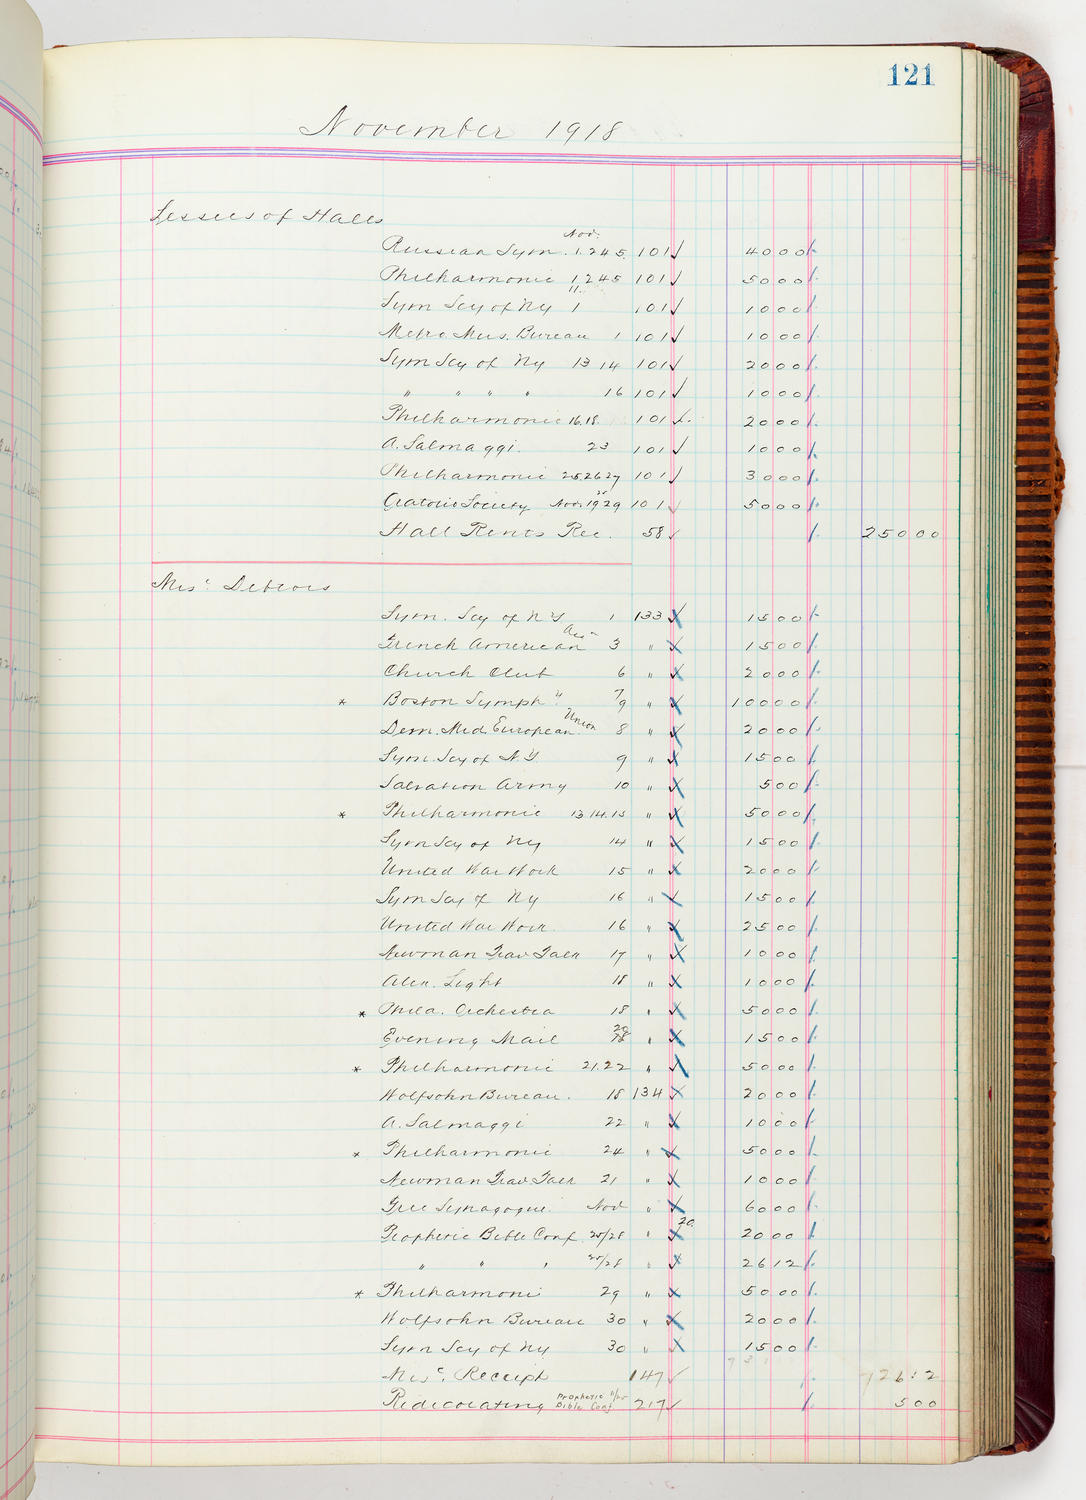 121
November 1918
Lessees of Halls
Nov.
Russian Sym. 1.2 4 5. 101 ✓ 4000
Philharmonic 1, 2 4 5 101 ✓ 5000
Sym Scy of Ny 1 101 ✓ 1000
Metro Mus. Bureau 1 101 ✓ 1000
Sym Scy of Ny 13 14 101 ✓ 2000
" " " " 16 101 ✓ 1000
Philharmonic 16.18 101 ✓ 2000
A. Salmaggi. 23 101 ✓ 1000
Philharmonic 25,26 27 101 ✓ 3000
Oratorio Society Nov. 19 29 101 ✓ 5000
Hall Rents Rec. 58 ✓ 25000
Misc. Debtors
Sym. Scy of NY 1 133 1500
French American 3 " 1500
Church Club 6 " 2000
* Boston Symph " 7/9 " 10000
Dem. Mid. European Union 8 " 2000
Sym. Scy of N.Y. 9 " 1500
Salvation Army 10 " 500
* Philharmonic 13.14.15 " 5000
Sym Scy of Ny 14 " 1500
United War Work 15 " 2000
Sym Scy of Ny 16 " 1500
United War Work 16 " 2500
Newman Trav Talk 17 " 1000
Alex. Light 18 " 1000
* Phila. Orchestra 18 " 5000
Evening Mail " 1500
* Philharmonic 21.22 " 5000
Wolfsohn Bureau. 18 134 2000
A. Salmaggi 22 " 1000
* Philharmonic 24 " 5000
Newman Trav Talk 21 " 1000
Free Synagogue. Nov " 6000
20
Prophetic Bible Conf 25/28 " 2000
" " " 25/28 " 2612
* Philharmoni 29 " 5000
Wolfsohn Bureau 30 " 2000
Sym Scy of Ny 30 " 1500
Misc. Receipt 147 ✓ 72612
Redecorating Prophetic Bible Conf 217 ✓ 500